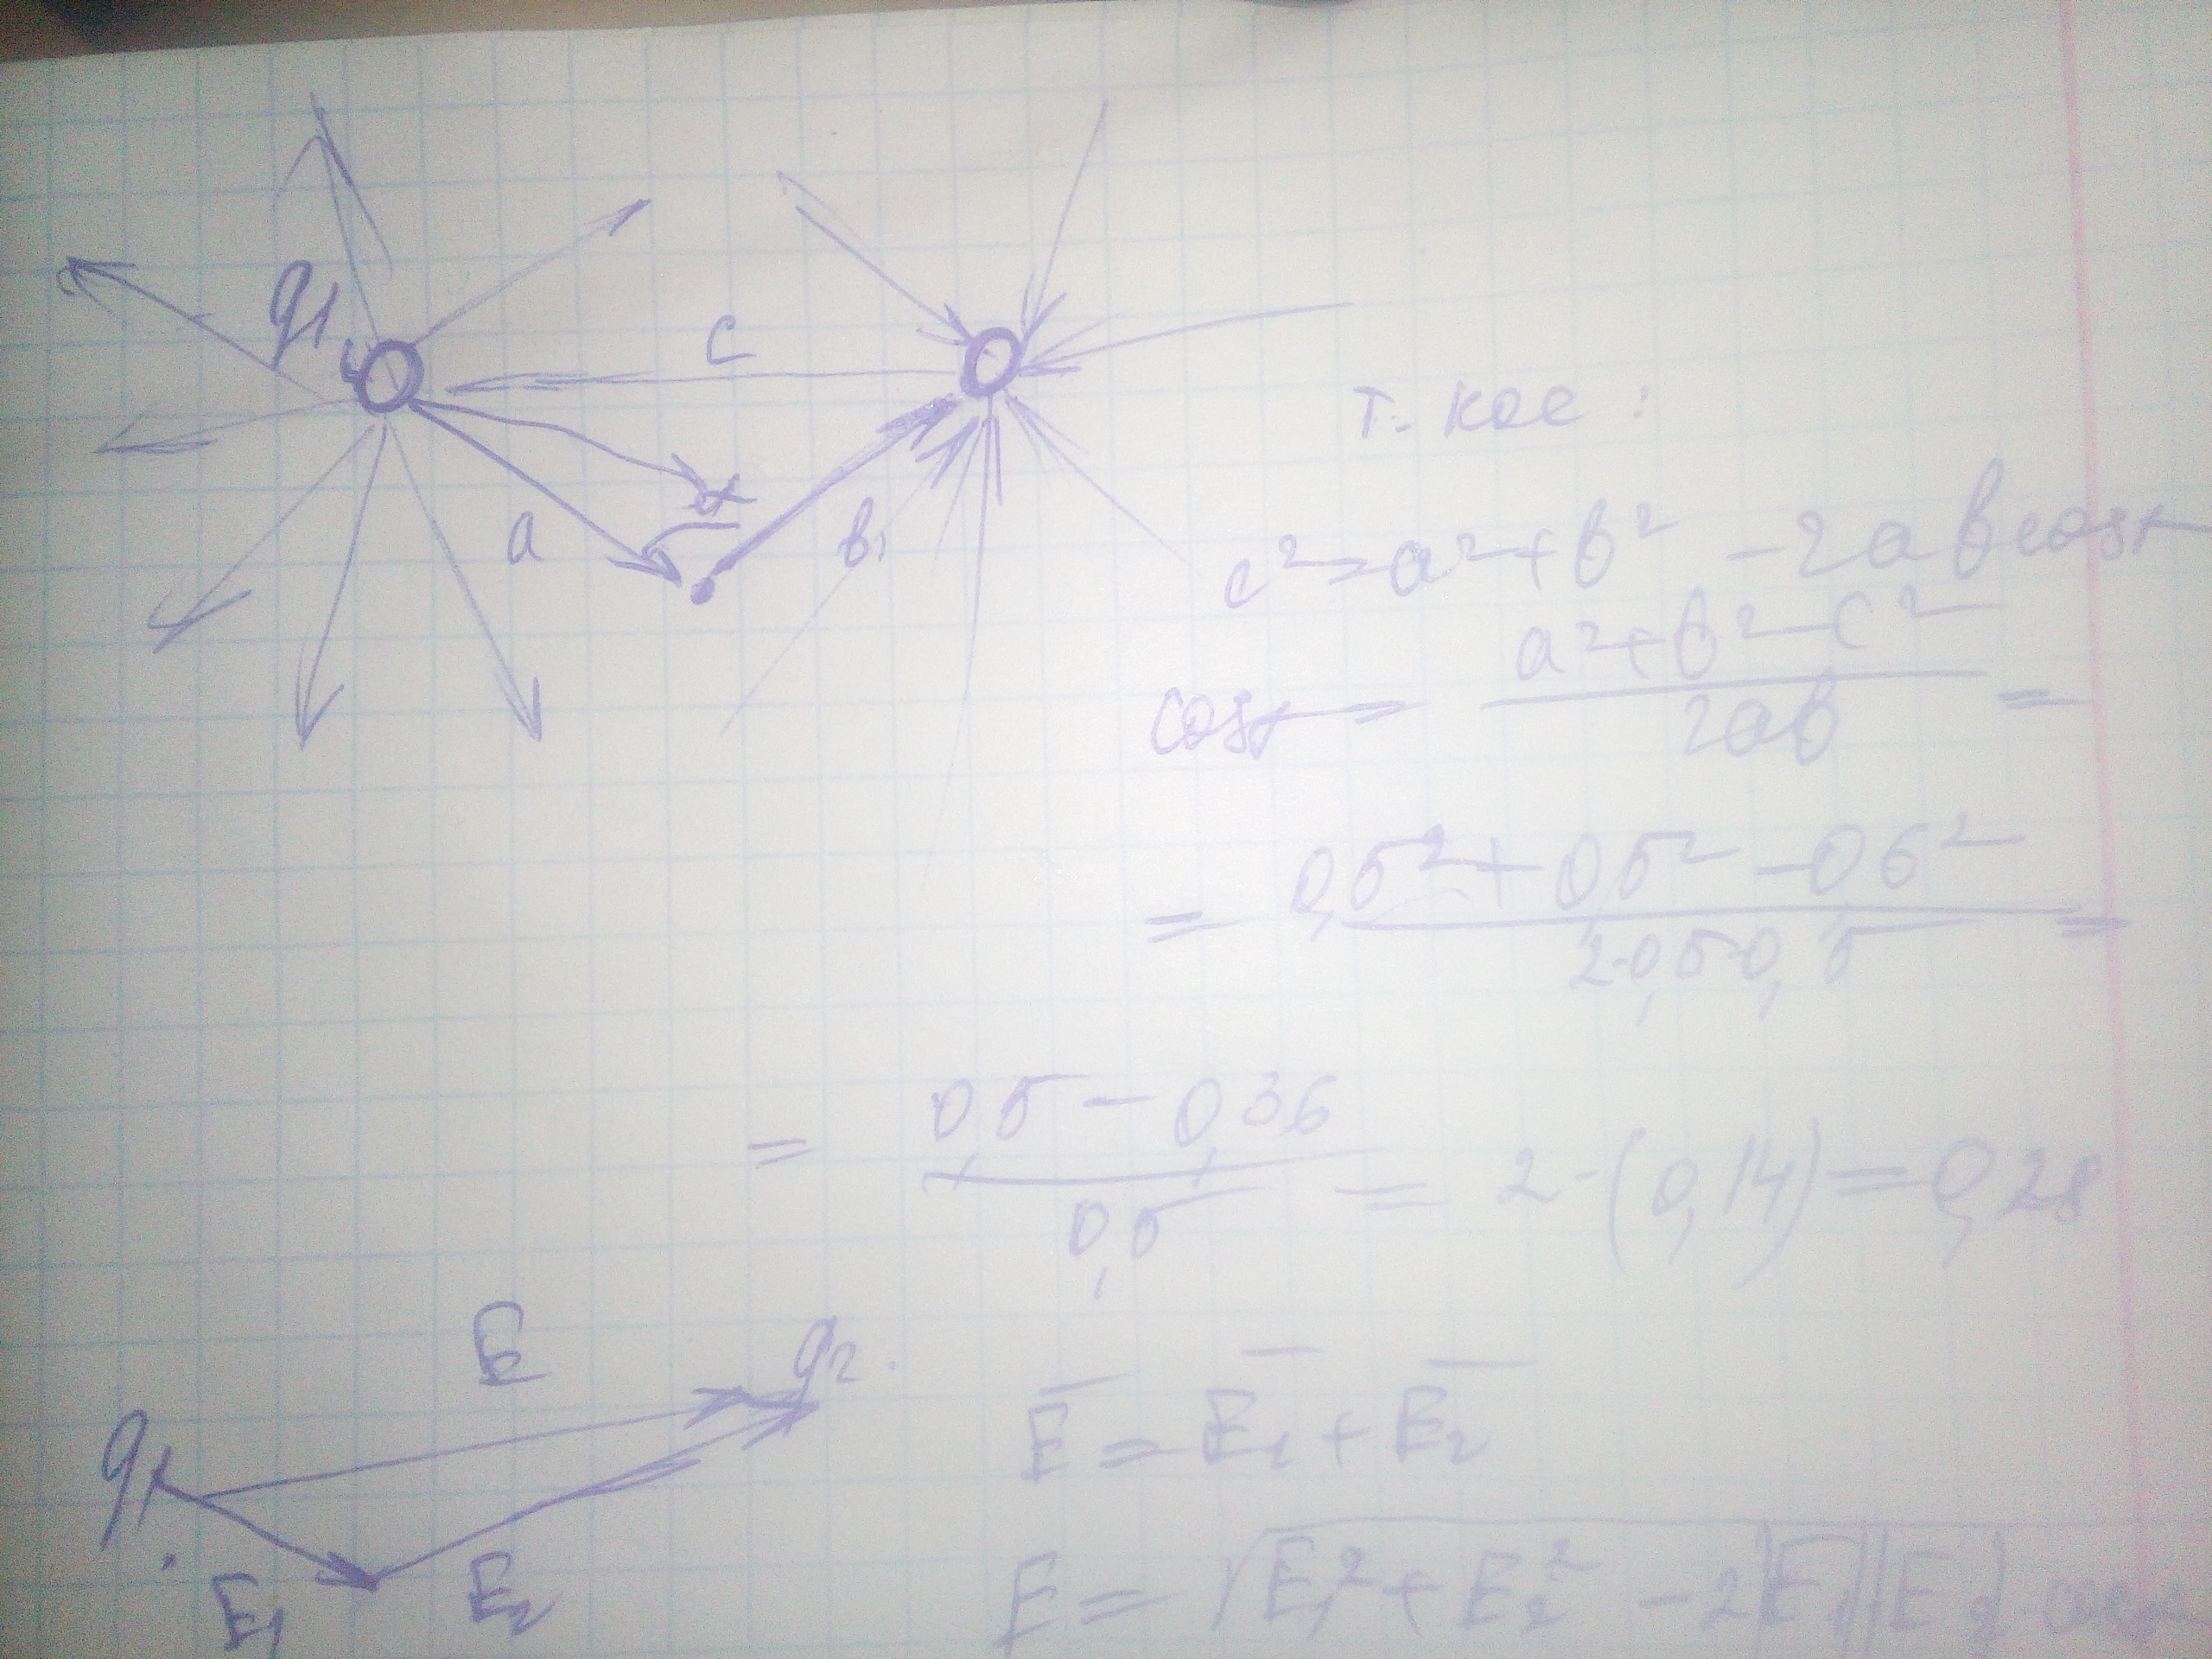 q1
c
α
a
b1
т. кос :
c² = a² + b² - 2ab cosα
cosα = (a² + b² - c²) / 2ab =
= (0,5² + 0,5² - 0,6²) / 2·0,5·0,5 =
= (0,5 - 0,36) / 0,5 = 2·(0,14) = 0,28
E
q2
q1
E1
E2
E̅ = E̅1 + E̅2
E = √E1² + E2² - 2|E1||E2| cosα